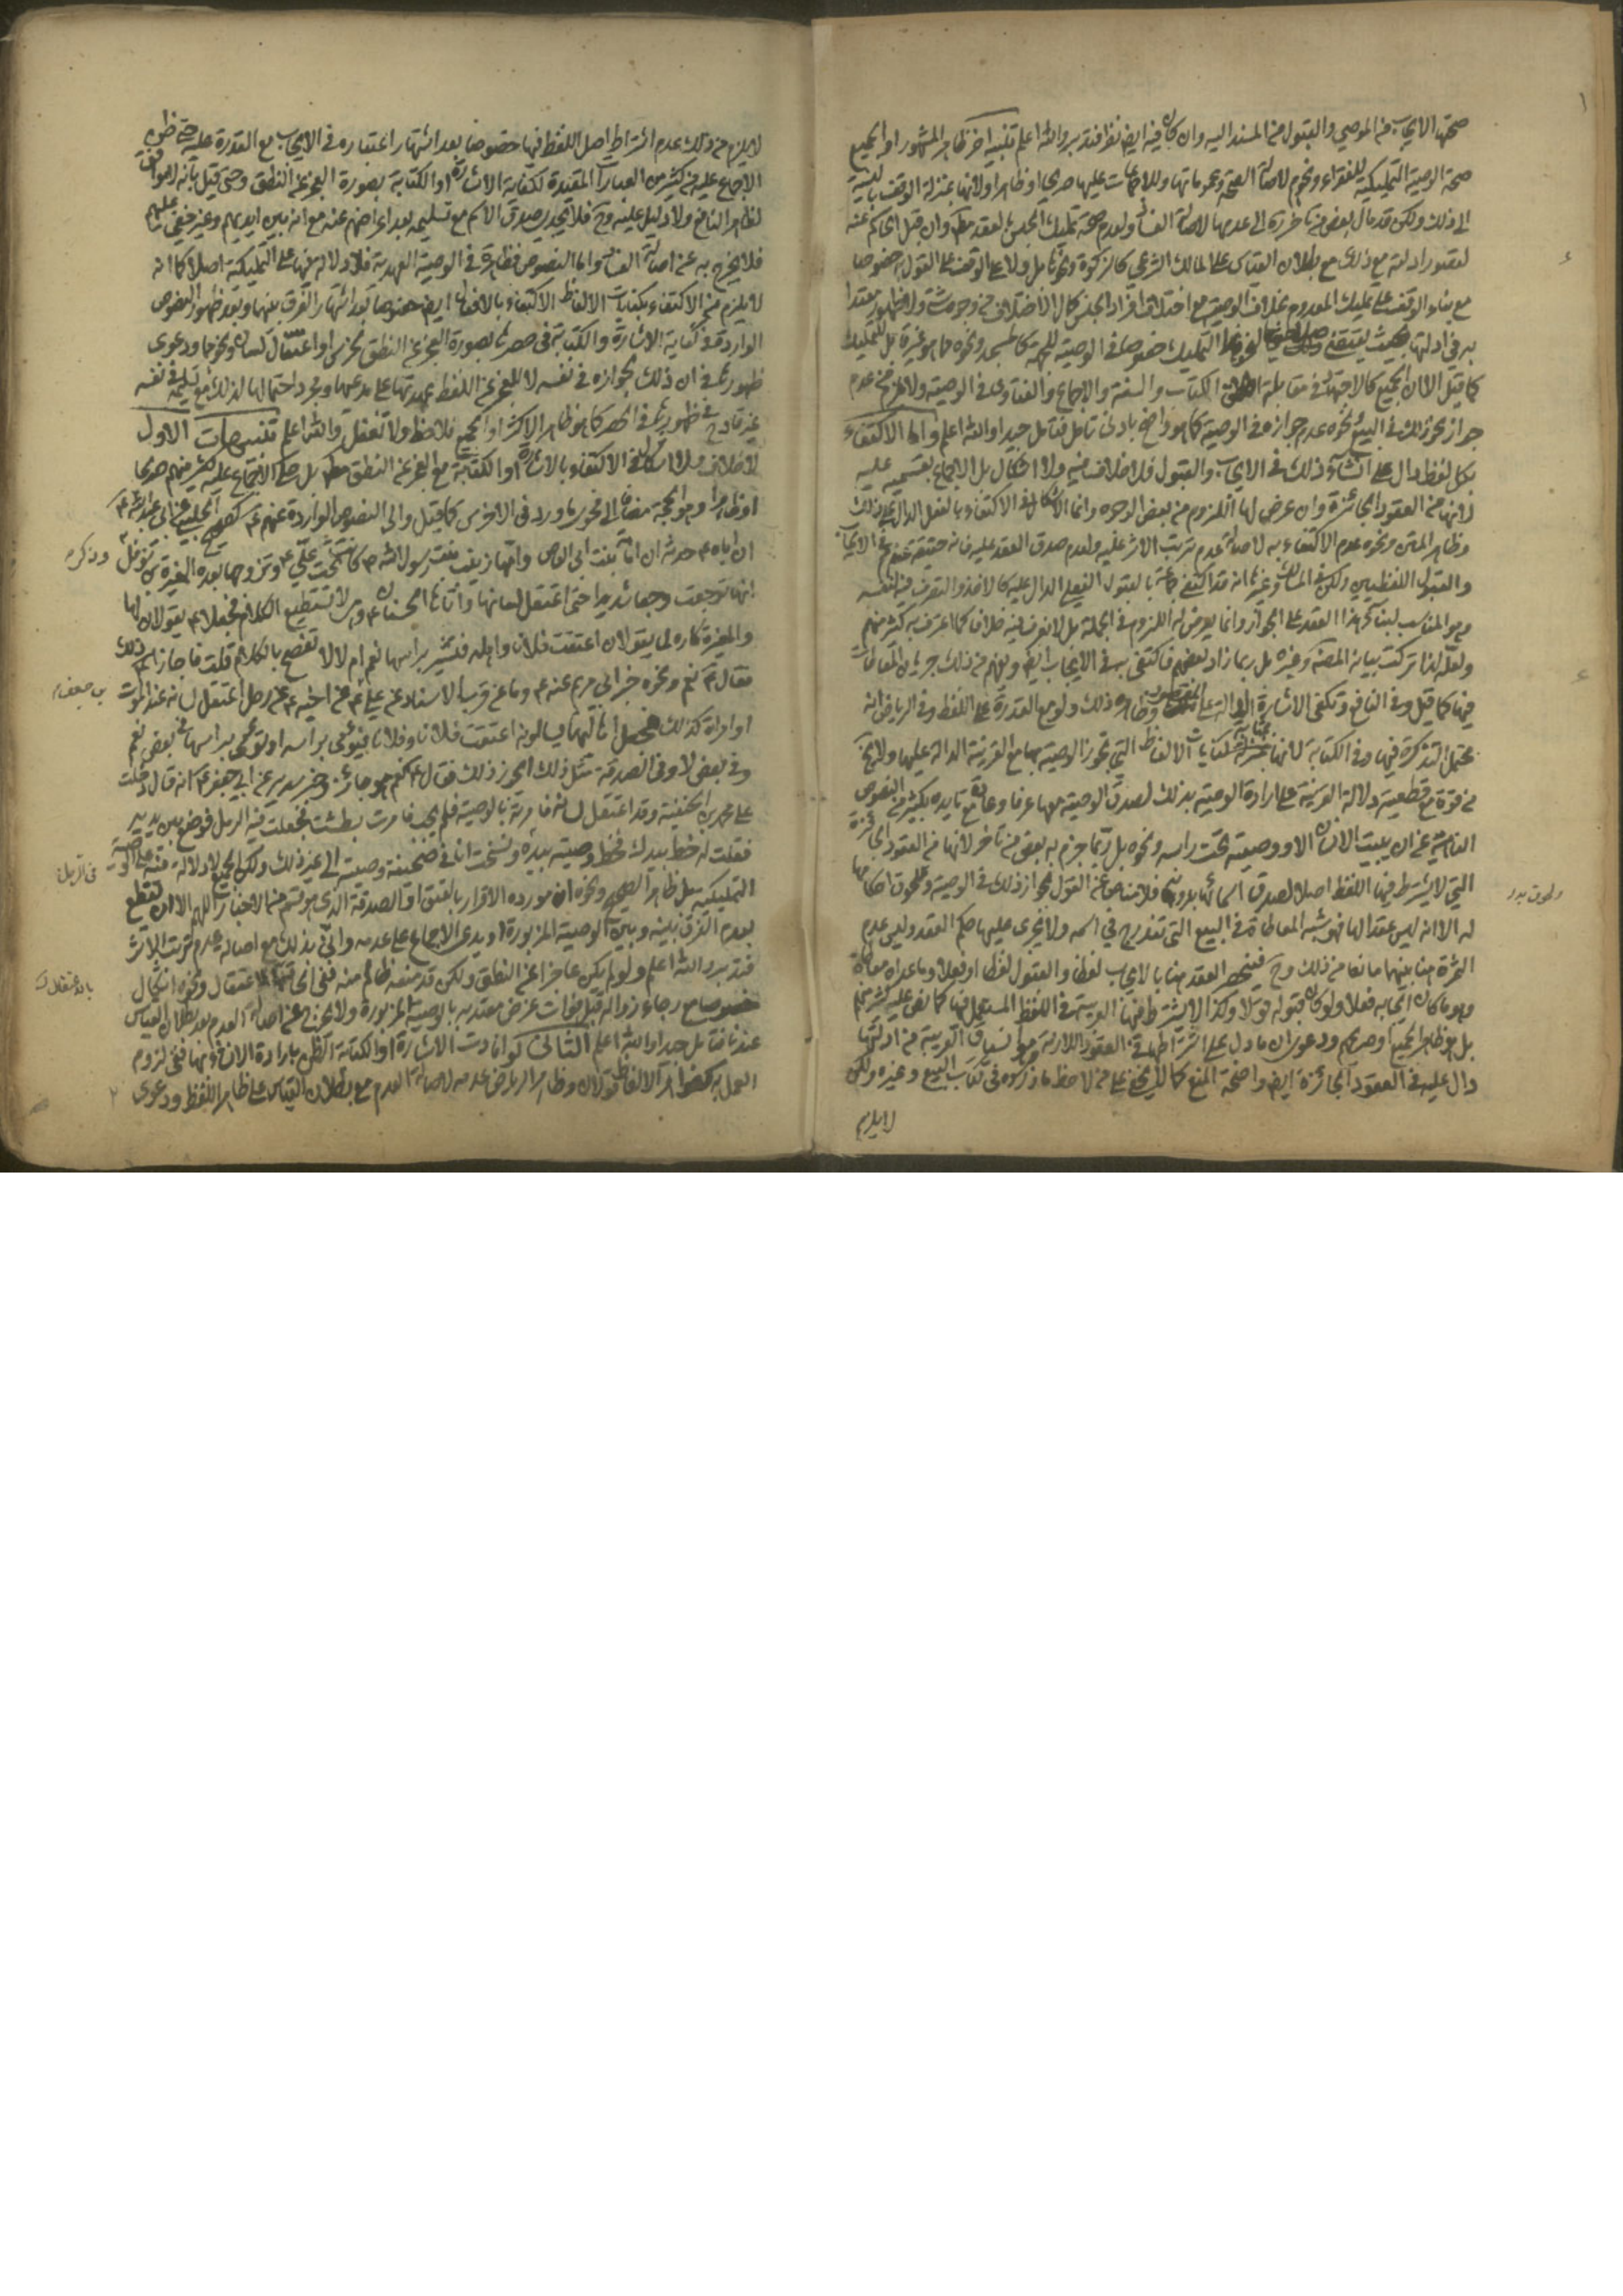 صحتها الايجاب من الموصي والقبول من المسند اليه وان كان فيه ايضا نظر فتدبر والله اعلم تنبيه اخر ظاهر المشهور او الجميع
صحة الوصية التمليكية للفقراء ونحوهم لاصالة الصحة وعموماتها وللاجماعات عليها صريحا وظاهرا ولانها بمنزلة الوقف بالنسبة
الى ذلك ولكن قد مال بعض من تاخر الى عدمها لاصالة الفساد ولعدم صحة تمليك الجنس لعقد وان قيل الحاكم عنه
لقصور ادلته مع ذلك مع بطلان القياس على المالك الشرعي كالزكوة ونحوها بل ولا على الوقف على القول به خصوصا
مع بناء الوقف على تمليك المعدوم بخلاف الوصية مع اختلاف افراد الجنس كمال الاختلاف من وجوه شتى ولا ظهور معتدا
به في ادلتها بحيث يقتضي التمليك خصوصا في الوصية للجهة كالمسجد ونحوه مما هو غيره بل للتمليك
كما قيل الا ان الجميع كالاجتهاد في مقابلة الكتاب والسنة والاجماع والفتاوى في الوصية ولا يلزم من عدم
جواز نحو ذلك في البيع ونحوه عدم جوازه في الوصية كما هو واضح بادنى تامل فتامل جيدا والله اعلم واما الاكتفاء
بكل لفظ دال على انشاء ذلك في الايجاب والقبول فلا خلاف فيه ولا اشكال بل الاجماع بقسميه عليه
لانها من العقود الجائزة وان عرض لها اللزوم من بعض الوجوه وانما الاشكال في الاكتفاء بالفعل الدال على ذلك
وظاهر المتن ونحوه عدم الاكتفاء به لاصالة عدم ترتب الاثر عليه ولعدم صدق العقد عليه فانه حقيقة عندهم في الايجاب
والقبول اللفظيين ولكن في المسالك وغيرها انه قد اكتفى جماعة بالقبول الفعلي الدال عليه كالاخذ والتصرف فيه لنفسه
وهو المناسب لبناء هذا العقد على الجواز وانما يعرض له اللزوم في الجملة بل لا نعرف فيه خلاف كما اعترف به كثير منهم
ولعله لذا تركت بيانه المصنف وغيره بل ربما زاد بعضهم فاكتفى به في الايجاب ايضا ويفهم من ذلك جريان المعاطات
فيها كما قيل وفي النافع وتكفي الاشارة الدالة على المقصود وظاهره ذلك ولو مع القدرة على اللفظ وفي الرياض انه
محتمل التذكرة فيها وفي الكتابة لانها بمثابة كنايات الالفاظ التي تجوز الوصية بها مع القرينة الدالة عليها ولا يخ
من قوة مع قطعية دلالة القرينة على ارادة الوصية بذلك لصدق الوصية معها عرفا وعادة مع تاييده بكثير من النصوص
الناهية عن ان يبيت الانسان الا ووصيته تحت راسه ونحوه بل ربما جزم به بعض من تاخر لانها من العقود الجائزة
التي لا يشترط فيها اللفظ اصلا لصدق اسمائها بدونه فلا مناص عن القول بجواز ذلك في الوصية ولحوق احكامها
له الا انه ليس عقد الها فهو شبه المعاطاة في البيع التي تندرج في اسمه ولا يجري عليها حكم العقد وليس عدم
الثمرة هنا بينهما مانعا من ذلك وح فينحصر العقد هنا بالايجاب لفظا والقبول لفظا او فعلا وما عداه معاطاة
وهو ما كان ايجابه فعلا ولو كان قبوله قولا وكذا لا يشترط فيها العربية في اللفظ المستعمل فيها كما نص عليه كثير منهم
بل هو ظاهر الجميع او صريحهم ودعوى ان ما دل على اشتراطها في العقود اللازمة من انسياق العربية من ادلتها
دال عليه في العقود الجائزة ايضا واضحة المنع كما لا يخفى على من لاحظ ما ذكروه في كتاب البيع وغيره ولكن
لا يلزم
ولحوق بدر
لا يلزم من ذلك عدم اشتراط اصل اللفظ فيها خصوصا بعد اشتهار اعتباره في الايجاب مع القدرة عليه حتى ظهر
الاجماع عليه من كثير من العبارات المقيدة لكفاية الاشارة او الكتابة بصورة العجز عن النطق وحتى قيل بانه لا موافق
لظاهر النافع ولا دليل عليه وح فلا يجدي صدق الاسم مع تسليمه بعد اعراضهم عنه مع انه بين ايديهم وغير خفي عليهم
فلا يخرج به عن اصالة الفساد واما النصوص فظاهرة في الوصية العهدية فلا دلالة فيها على التمليكية اصلا كما انه
لا يلزم من الاكتفاء بكنايات الالفاظ الاكتفاء بالافعال ايضا خصوصا بعد اشتهار الفرق بينها وبعد ظهور النصوص
الواردة في كفاية الاشارة والكتابة في حصرها بصورة العجز عن النطق بخرس او اعتقال لسان ونحوها ودعوى
ظهورها في ان ذلك لجوازه في نفسه لا للعجز عن اللفظ عهدتها على مدعيها ومجرد احتمالها لذلك مع تسليمه في نفسه
غير قادح في ظهورها في الحصر كما هو ظاهر الاكثر او الجميع فلاحظ ولا تغفل والله اعلم تنبيهات الاول
لا خلاف ولا اشكال في الاكتفاء بالاشارة او الكتابة مع العجز عن النطق بل حكى الاجماع عليه كثير منهم صريحا
او ظاهرا وهو الحجة مضافا الى فحوى ما ورد في الاخرس كما قيل والى النصوص الواردة عنهم ع كصحيح الحلبي عن ابي عبدالله ع
ان اباه ع حدثه ان امامة بنت ابي العاص وامها زينب بنت رسول الله ص كانت تحت علي ع وتزوجها بعده المغيرة بن نوفل
وذكره
انها توجعت وجعا شديدا حتى اعتقل لسانها واتاها الحسنان ع وهي لا تستطيع الكلام فجعلا ع يقولان لها
والمغيرة كاره لما يقولان اعتقت فلانا واهله فتشير براسها نعم ام لا لا تفصح بالكلام قلت فاجازا ذلك
فقال ع نعم ونحوه خبر ابي مريم عنه ع وما عن قرب الاسناد عن علي ع عن اخيه ع عن رجل اعتقل لسانه عند الموت
بن جعفر
او امراة كذلك فجعل اهاليهما يسالونه اعتقت فلانا وفلانا فيومي براسه او تومي براسها في بعض نعم
وفي بعض لا وفي الصدقة مثل ذلك ايجوز ذلك فقال ع نعم هو جائز وخبر سدير عن ابي جعفر ع انه قال دخلت
على محمد بن الحنفية وقد اعتقل لسانه فامرته بالوصية فلم يجب فامرت بطشت فجعلت فيه الرمل فوضع بين يديه
فقلت له خط بيدك فخط وصيته بيده ونسخت انا في صحيفة وصيته الى غير ذلك ولكن الجميع لا دلالة فيه على الوصية
في الرمل
التمليكية بل ظاهر الصحيح ونحوه ان مورده الاقرار بالعتق او الصدقة الذي هو قسم من الاخبار اللهم الا ان يقطع
بعدم الفرق بينه وبين الوصية المزبورة او يدعى الاجماع على عدمه واني بذلك مع اصالة عدم ترتب الاثر
فتدبر والله اعلم ولو لم يكن عاجزا عن النطق ولكن قد منعه ظالم منه ففي الحاقه بالاعتقال ونحوه اشكال
بالاعتقال
خصوصا مع رجاء زواله قبل فوات غرض معتد به بالوصية المزبورة ولا يخرج من اصالة العدم بعد بطلان القياس
عندنا فتامل جيدا والله اعلم الثاني لو افادت الاشارة او الكتابة الظن بارادة الانشاء منها ففي لزوم
العمل به كظواهر الالفاظ قولان وظاهر الرياض عدمه لاصالة العدم مع بطلان القياس على ظاهر اللفظ ودعوى